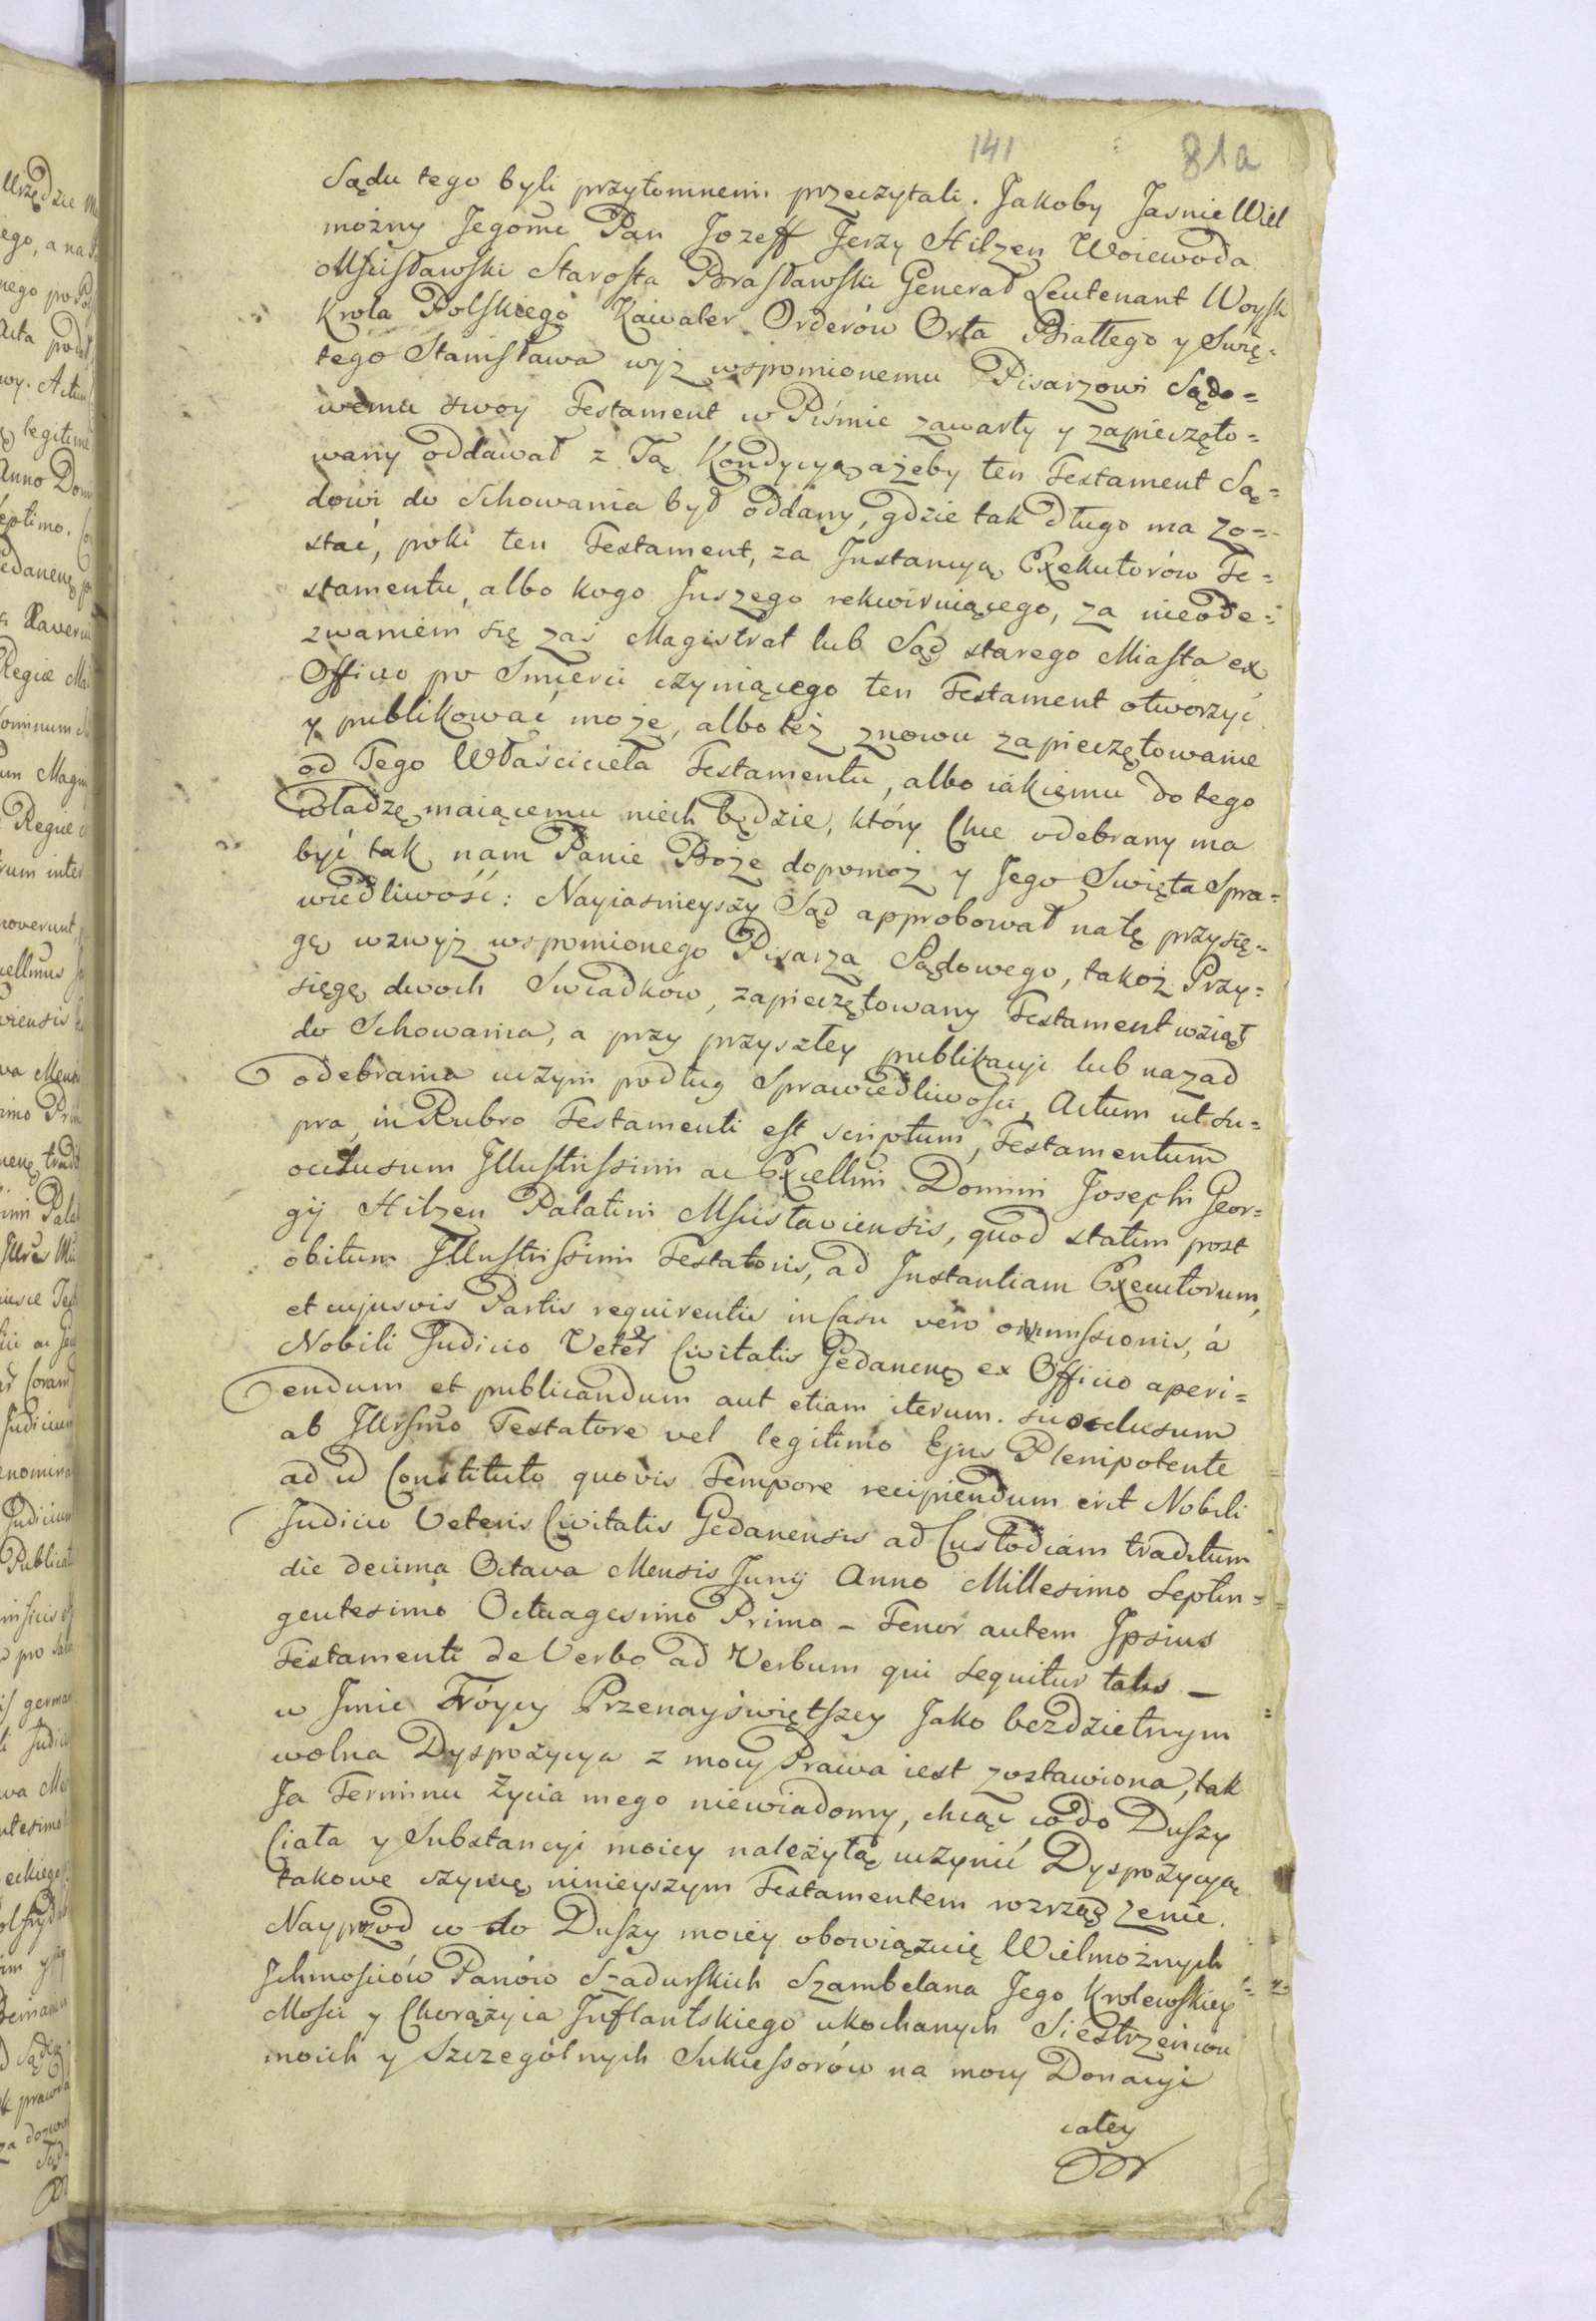 141 81a
Sądu tego byli przytomnemi przeczytali. Jakoby Jasnie Wiel
możny Jegome Pan Jozeff Jerzy Hilzen Woiewoda
Mscisławski Starosta Brasławski Generał Leutenant Woysk
Krola Polskiego Kawaler Orderów Orła Białłego y Swię=
tego Stanisława wyz wspomionemu Pisarzowi Sądo=
wemu swoy Testament w Piśmie zawarty y zapieczęto=
wany oddawał z Tą Kondycyą ażeby ten Testament Są=
dowi do Schowania był oddany, gdzie tak długo ma zo=
stać, poki ten Testament, za Jnstancyą Exekutorów Te=
stamentu, albo kogo Jnszego rekwiruiącego, za nieode=
zwaniem się zaś Magistrat lub Sąd starego Miasta ex
Officio po Smierci czyniącego ten Testament otworzyć
y publikować może, albo też znowu zapieczętowanie
od Tego Właściciela Testamentu, albo iakiemu do tego
władzę maiącemu niech będzie, który Chce odebrany ma
być tak nam Panie Boże dopomoż y Jego Swięta Spra=
wiedliwość: Nayiasnieyszy Sąd approbował natę przysię=
gę wzwyż wspomionego Pisarza Sądowego, takoż Przy=
sięgę dwoch Swiadkow, zapieczętowany Testament wziął
do Schowania, a przy przyszłey publikacyi lub nazad
odebrania uczyni podług Sprawiedliwosci, Actum ut su=
pra, in Rubro Testamenti est scriptum, Testamentum
occlusum Jllustrissimi ac Excellmi Domini Josephi Geor=
gij Hilzen Palatini Mscislaviensis, quod statim post
obitum Jllustrissimi Testatoris, ad Jnstantiam Executorum,
et cujusvis Partis requirentis in Casu vero ommissionis, á
Nobili Judicio Veter Civitatis Gedanenę ex Officio aperi=
endum et publicandum aut etiam iterum occlusum
ab Jllrsmo Testatore vel legitimo Ejus Plenipotente
ad id Constituto quovis Tempore recipiendum erit Nobili
Judicio Veteris Civitatis Gedanensis ad Custodiam traditum
die decima Octava Mensis Junij Anno Millesimo Septin=
gentesimo Octuagesimo Primo – Tenor autem Jpsius
Testamenti de Verbo ad Verbum qui sequitur talis –
w Jmie Tróycy Przenayświętszey Jako bezdzietnym
wolna Dyspozycya z mocy Prawa iest zostawiona, tak
Ja Terminu życia mego niewiadomy, chcąc co do Duszy
Ciała y Substancyi moiey należytą uczynić Dyspozycyą
takowe czynię ninieyszym Testamentem rozrządzenie.
Nayprzod co do Duszy moiey obowiązuię Wielmożnych
Jchmosciów Panów Szadurskich Szambelana Jego Krolewskiey
Mosci y Chorążyca Jnflantskiego ukochanych Siestrzeńcow
moich y Szczególnych Sukcessorów na mocy Donacyi
całey